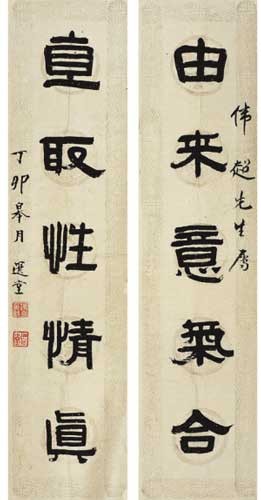 伟超先生属
由来意氣合
直取性情眞
丁卯皋月 選堂